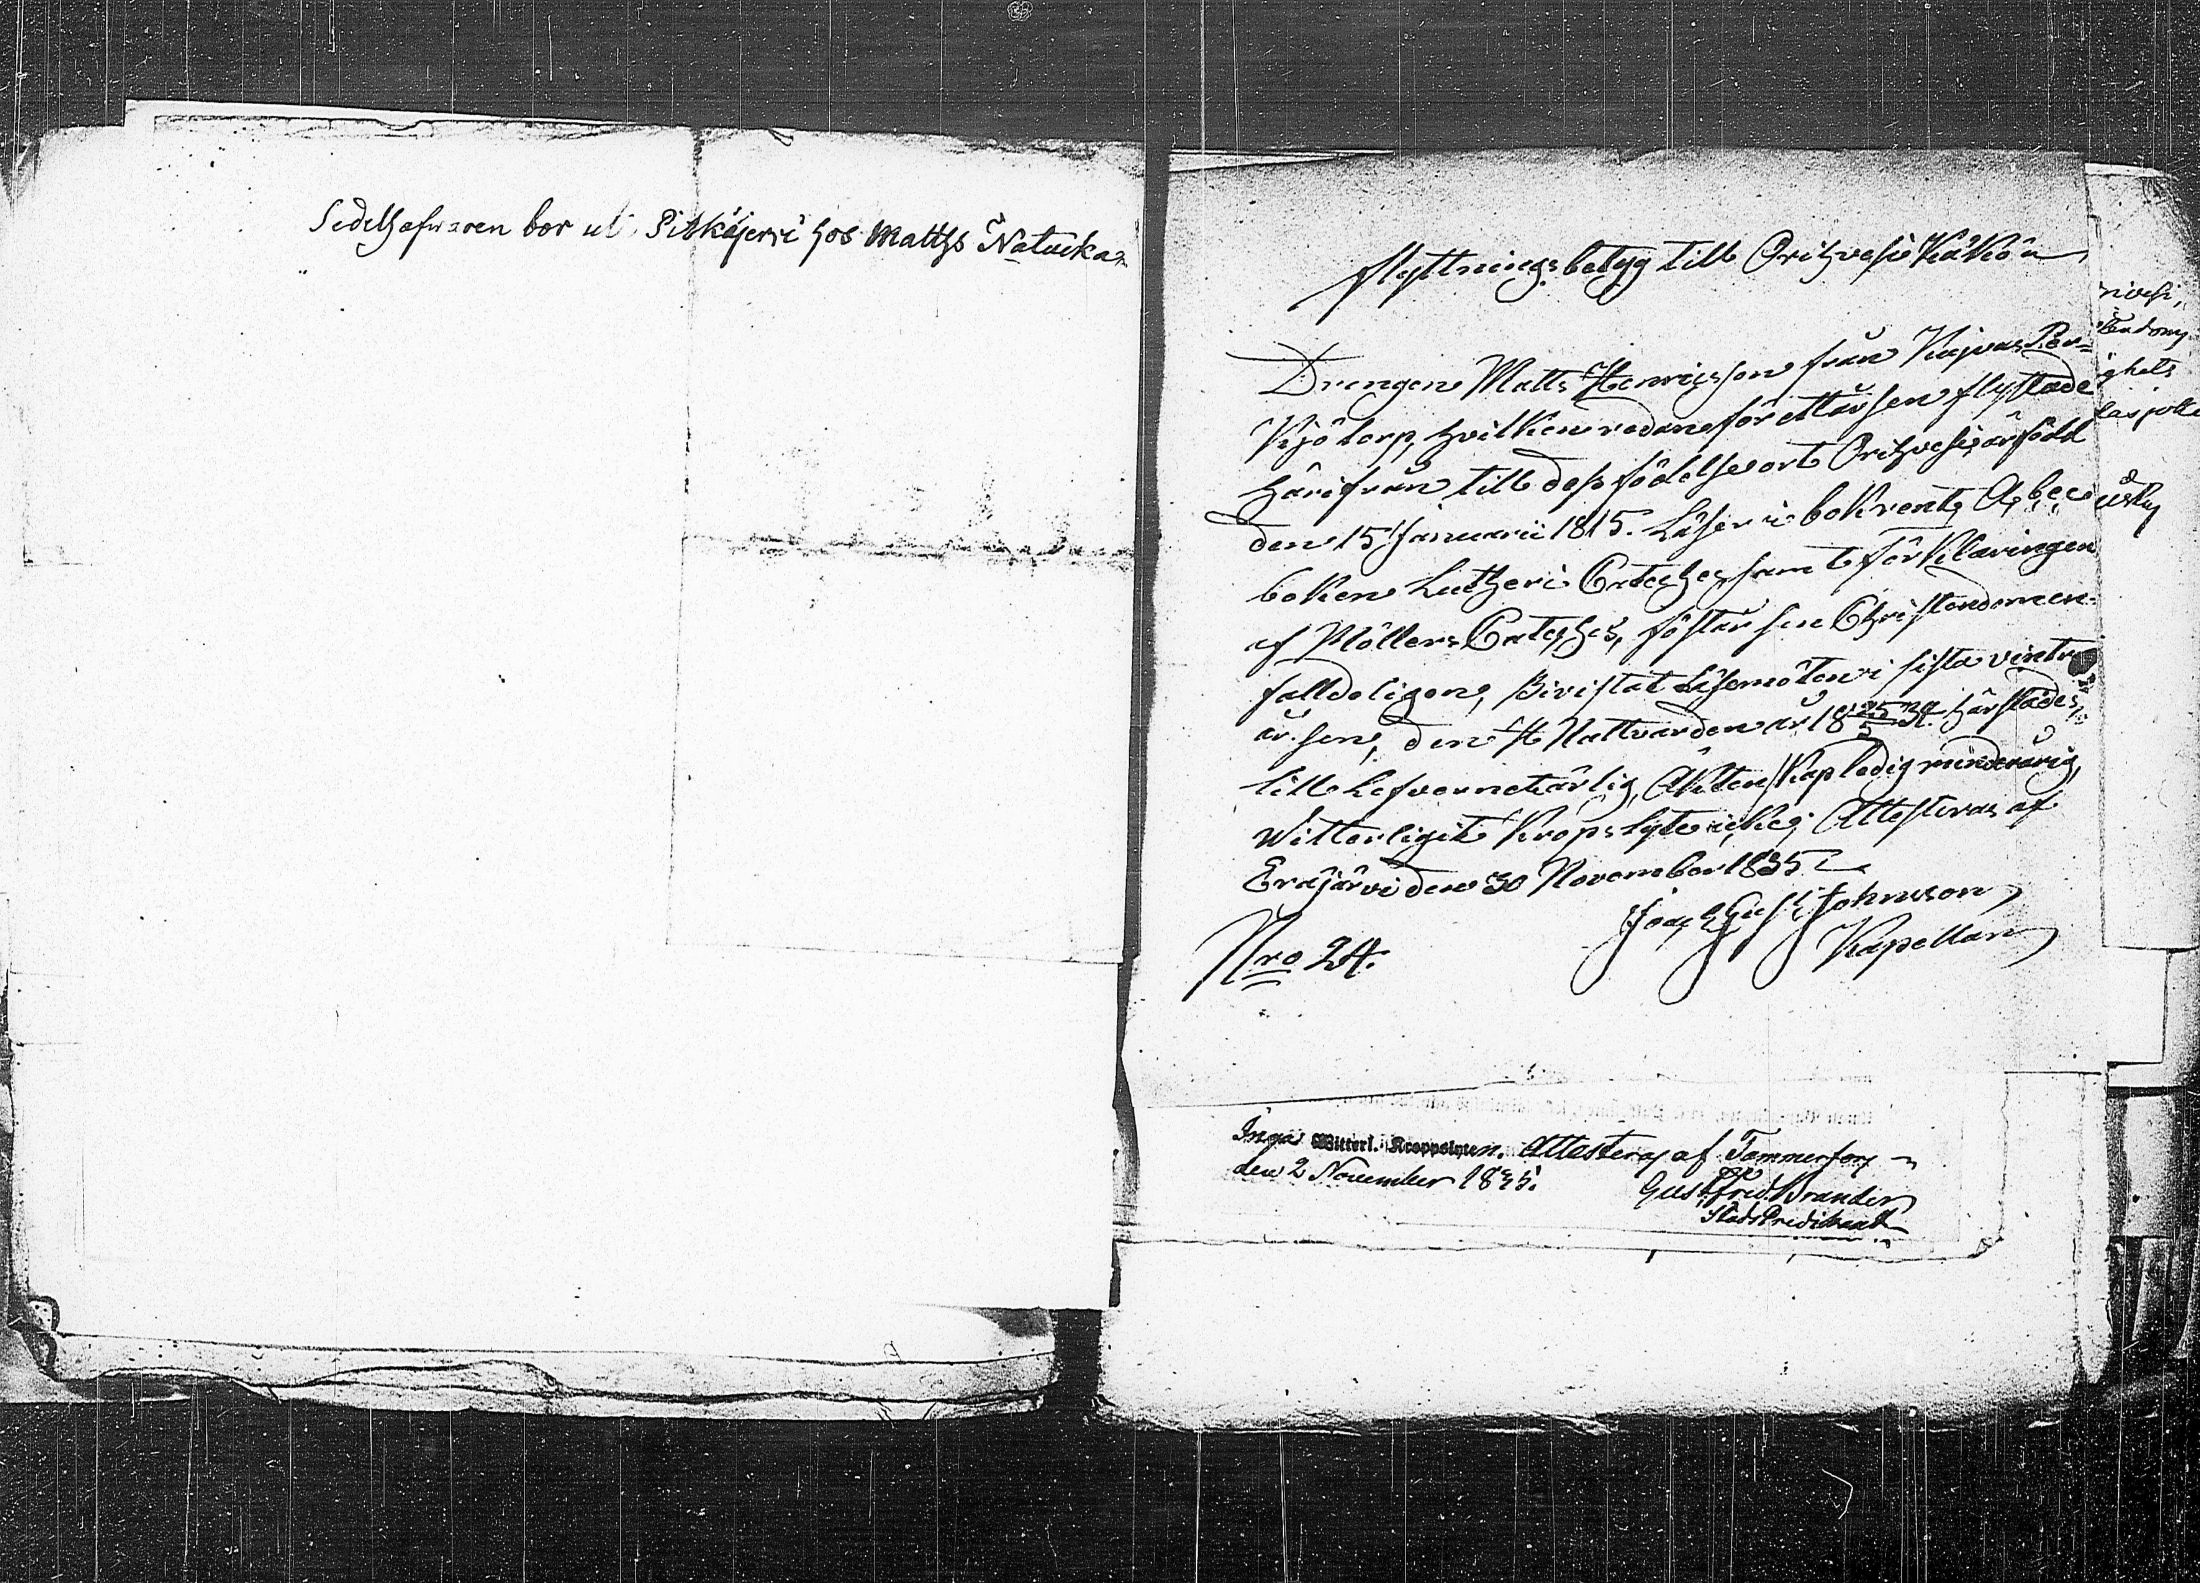 Sedelhafwaren bor ut Pitkäjerfvi hos Matths Natucka
Flyttningsbetyg till Orihvesi Käkön
Drengen Matts Henricsson från Kajvas Per=
Kjö torp, hvilken redan för ett år sen flyttade
härifrån till dess födelseort Orihvesi, är född
den 15 Januarii 1815. Läser i bok rent, Abec
boken Lutheri Cateches samt förklaringen
af Möllers Cateches, förstår sin Christendomen
falldeligen, Bivistat Läsemöten i sista vintr
år sen, den H. Nattvarden år 18 34. härstädes,
till Lefvernet ärlig, Äkten skap ledig minderårig,
Witterligit Kropslyte icke, Attesteras af
Eräjärvi den 30 November 1835
Joach Gust Johnsson
Kapellan
Nro 24.
nivesi,
tendomy
ghets
Inga Witterl. Kroppslyten. Attesteras af Tammerfors
den 2 November 1835.
Gust. Fred. Brander
Stads Predikant